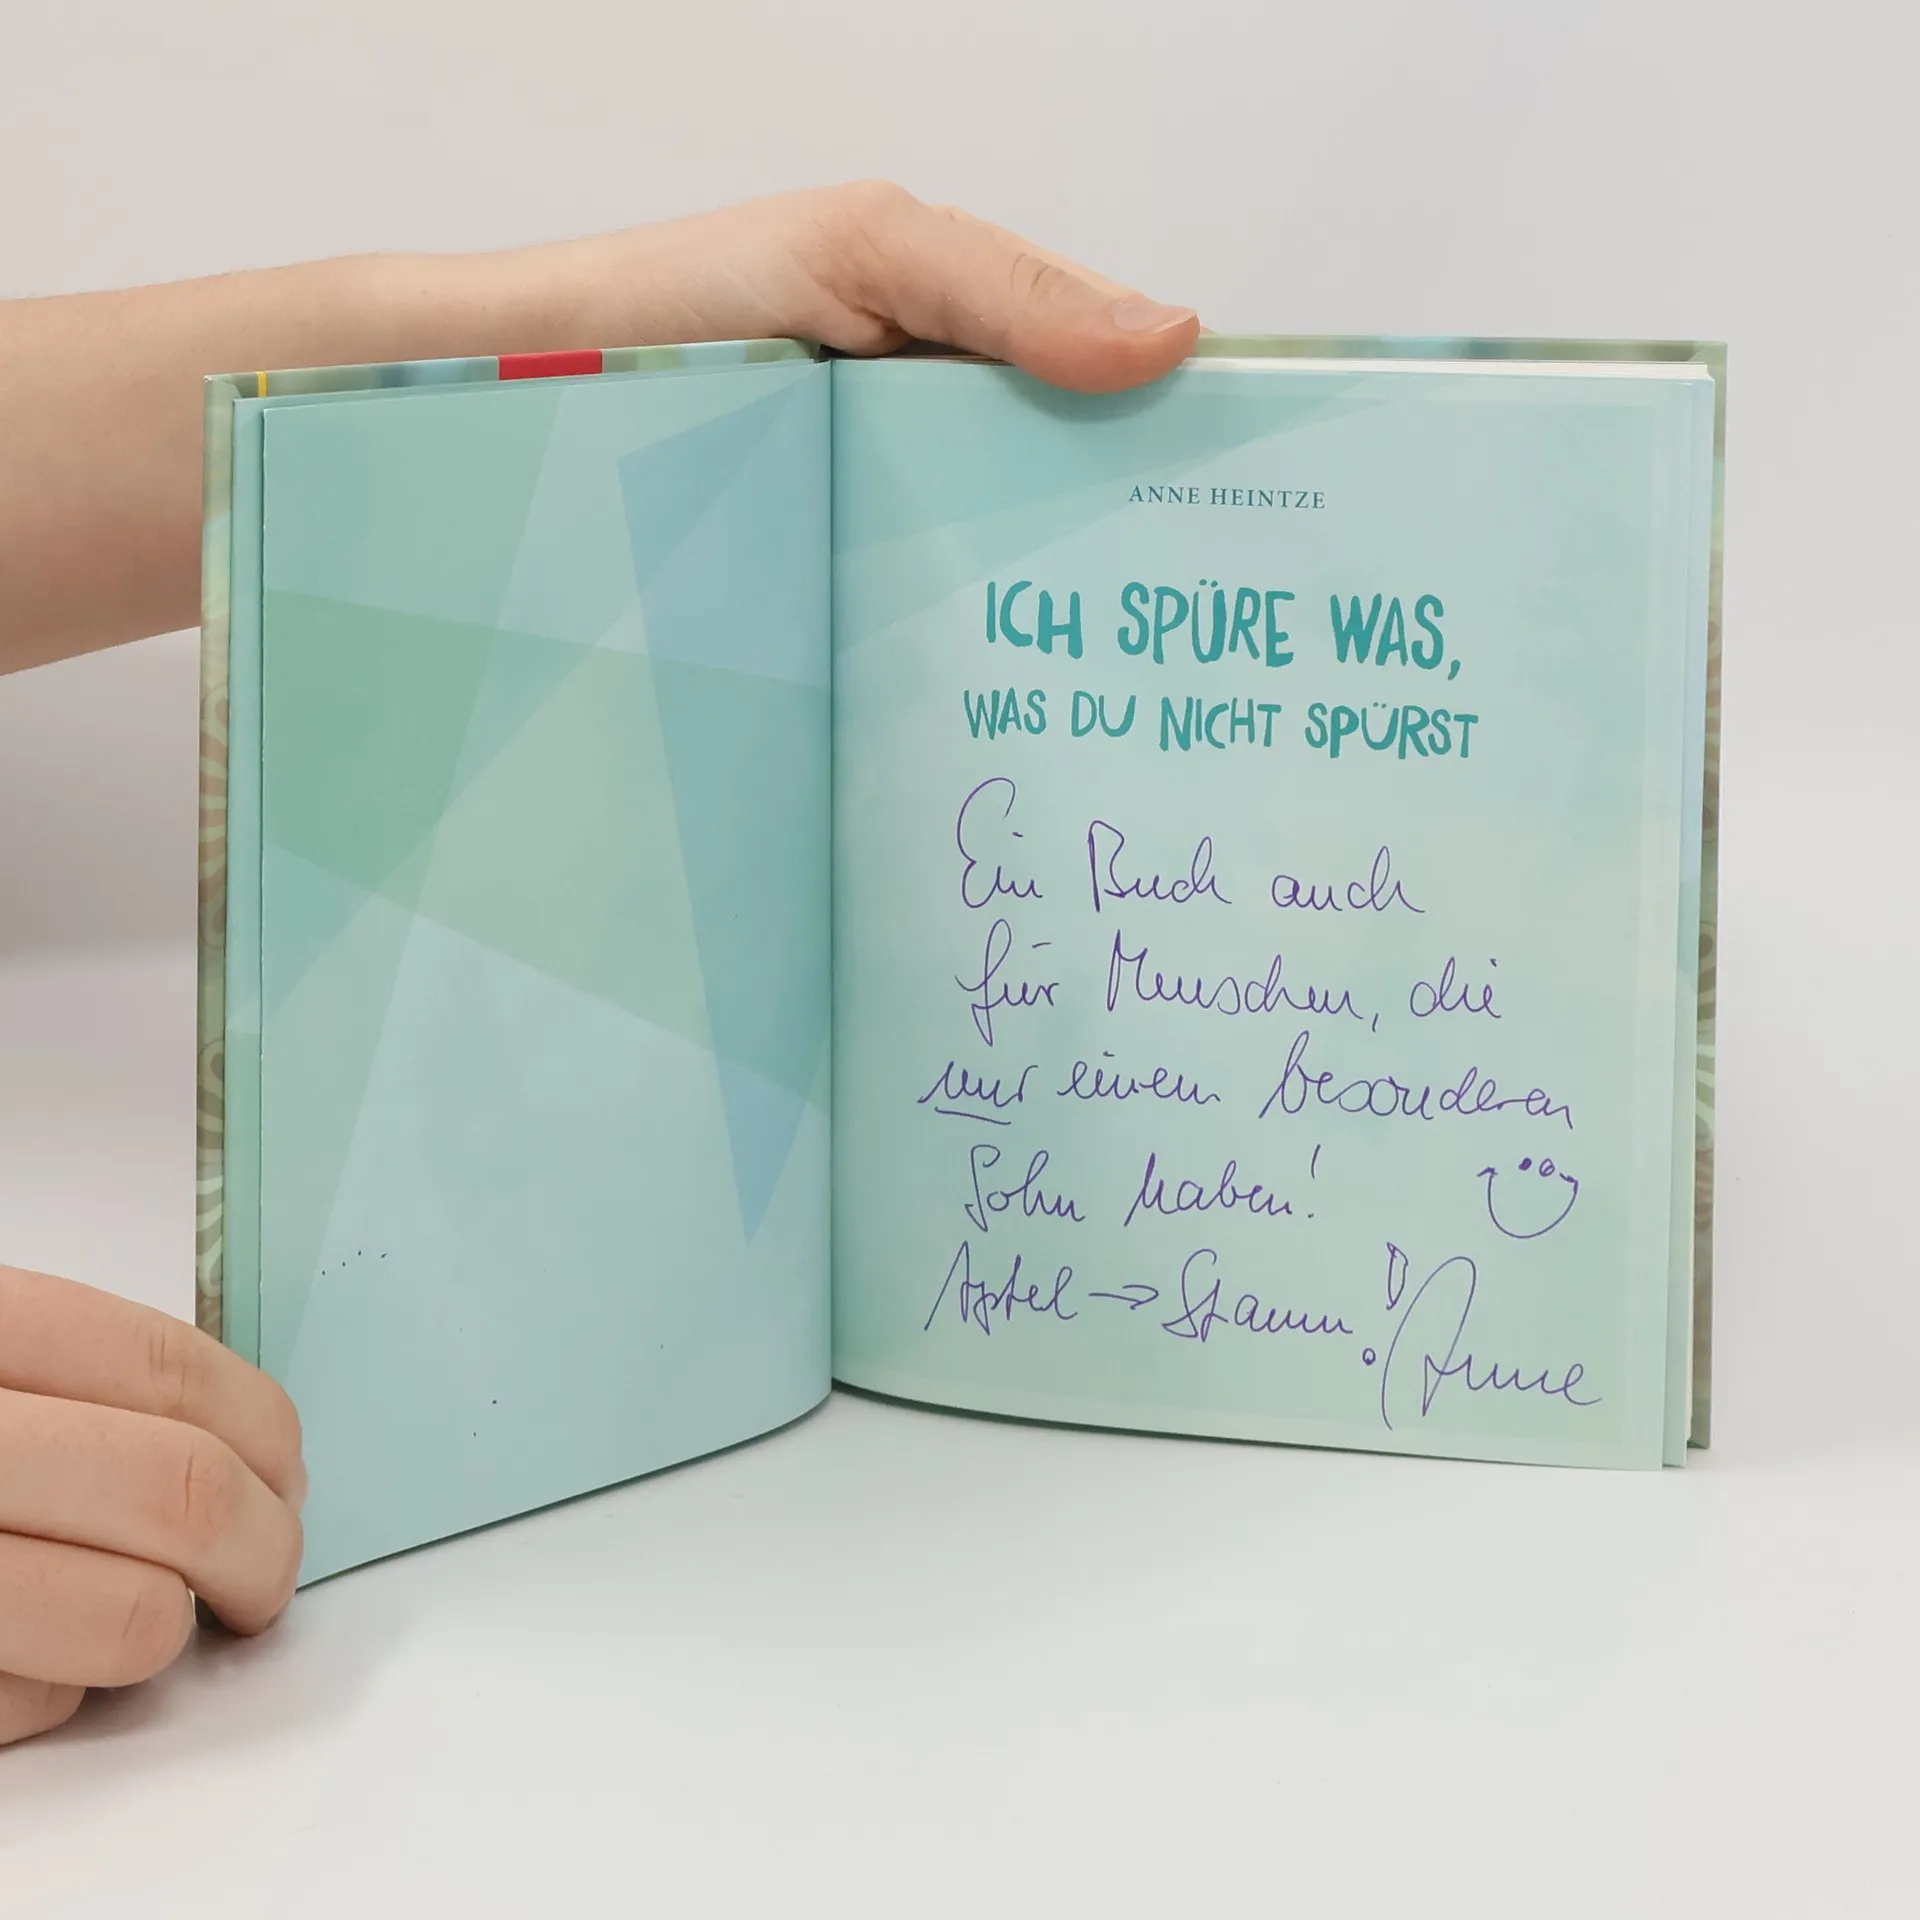 ANNE HEINTZE
ICH SPÜRE WAS,
WAS DU NICHT SPÜRST
Ein Buch auch
für Menschen, die
nur einen besonderen
Sohn haben!
Apfel → Stamm!
Anne